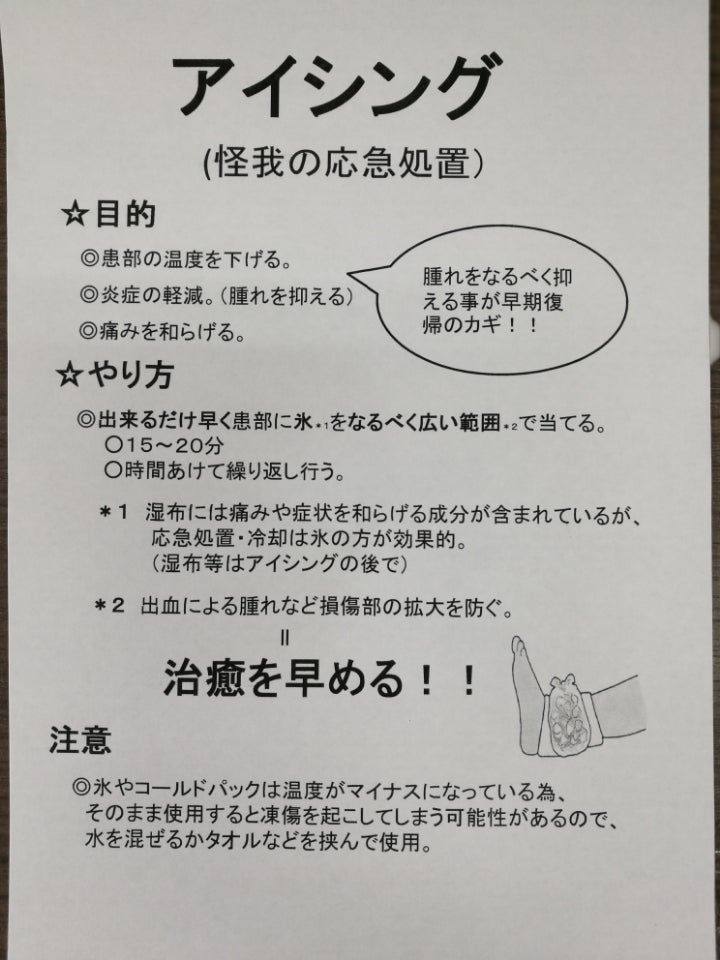 アイシング
(怪我の応急処置)
☆目的
◎患部の温度を下げる。
◎炎症の軽減。(腫れを抑える)
◎痛みを和らげる。
腫れをなるべく抑
える事が早期復
帰のカギ！！
☆やり方
◎出来るだけ早く患部に氷*1をなるべく広い範囲*2で当てる。
○15～20分
○時間あけて繰り返し行う。
＊1 湿布には痛みや症状を和らげる成分が含まれているが、
応急処置・冷却は氷の方が効果的。
(湿布等はアイシングの後で)
＊2 出血による腫れなど損傷部の拡大を防ぐ。
＝
治癒を早める！！
注意
◎氷やコールドパックは温度がマイナスになっている為、
そのまま使用すると凍傷を起こしてしまう可能性があるので、
水を混ぜるかタオルなどを挟んで使用。